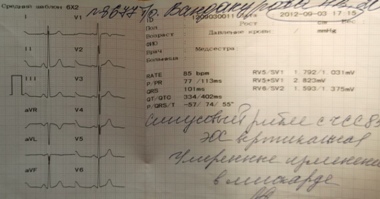 Средний комплекс 6X2
2012-09-03 17:15
I V1
Рост
Пол
Возраст Давление крови: mmHg
ВРС
Врач Медсестра:
II V2
III V3
RATE 85 bpm RV5/SV1 1.792/1.031mV
P/PR 77 /113ms RV5+SV1 2.823mV
QRS 101ms RV6/SV2 1.593/1.375mV
QT/QTC 334/402ms
P/QRS/T -57/ 74/ 55°
aVR V4
aVL V5
aVF V6
Синусовый ритм с ЧСС 85
ЭОС вертикальная
Умеренные изменения
в миокарде